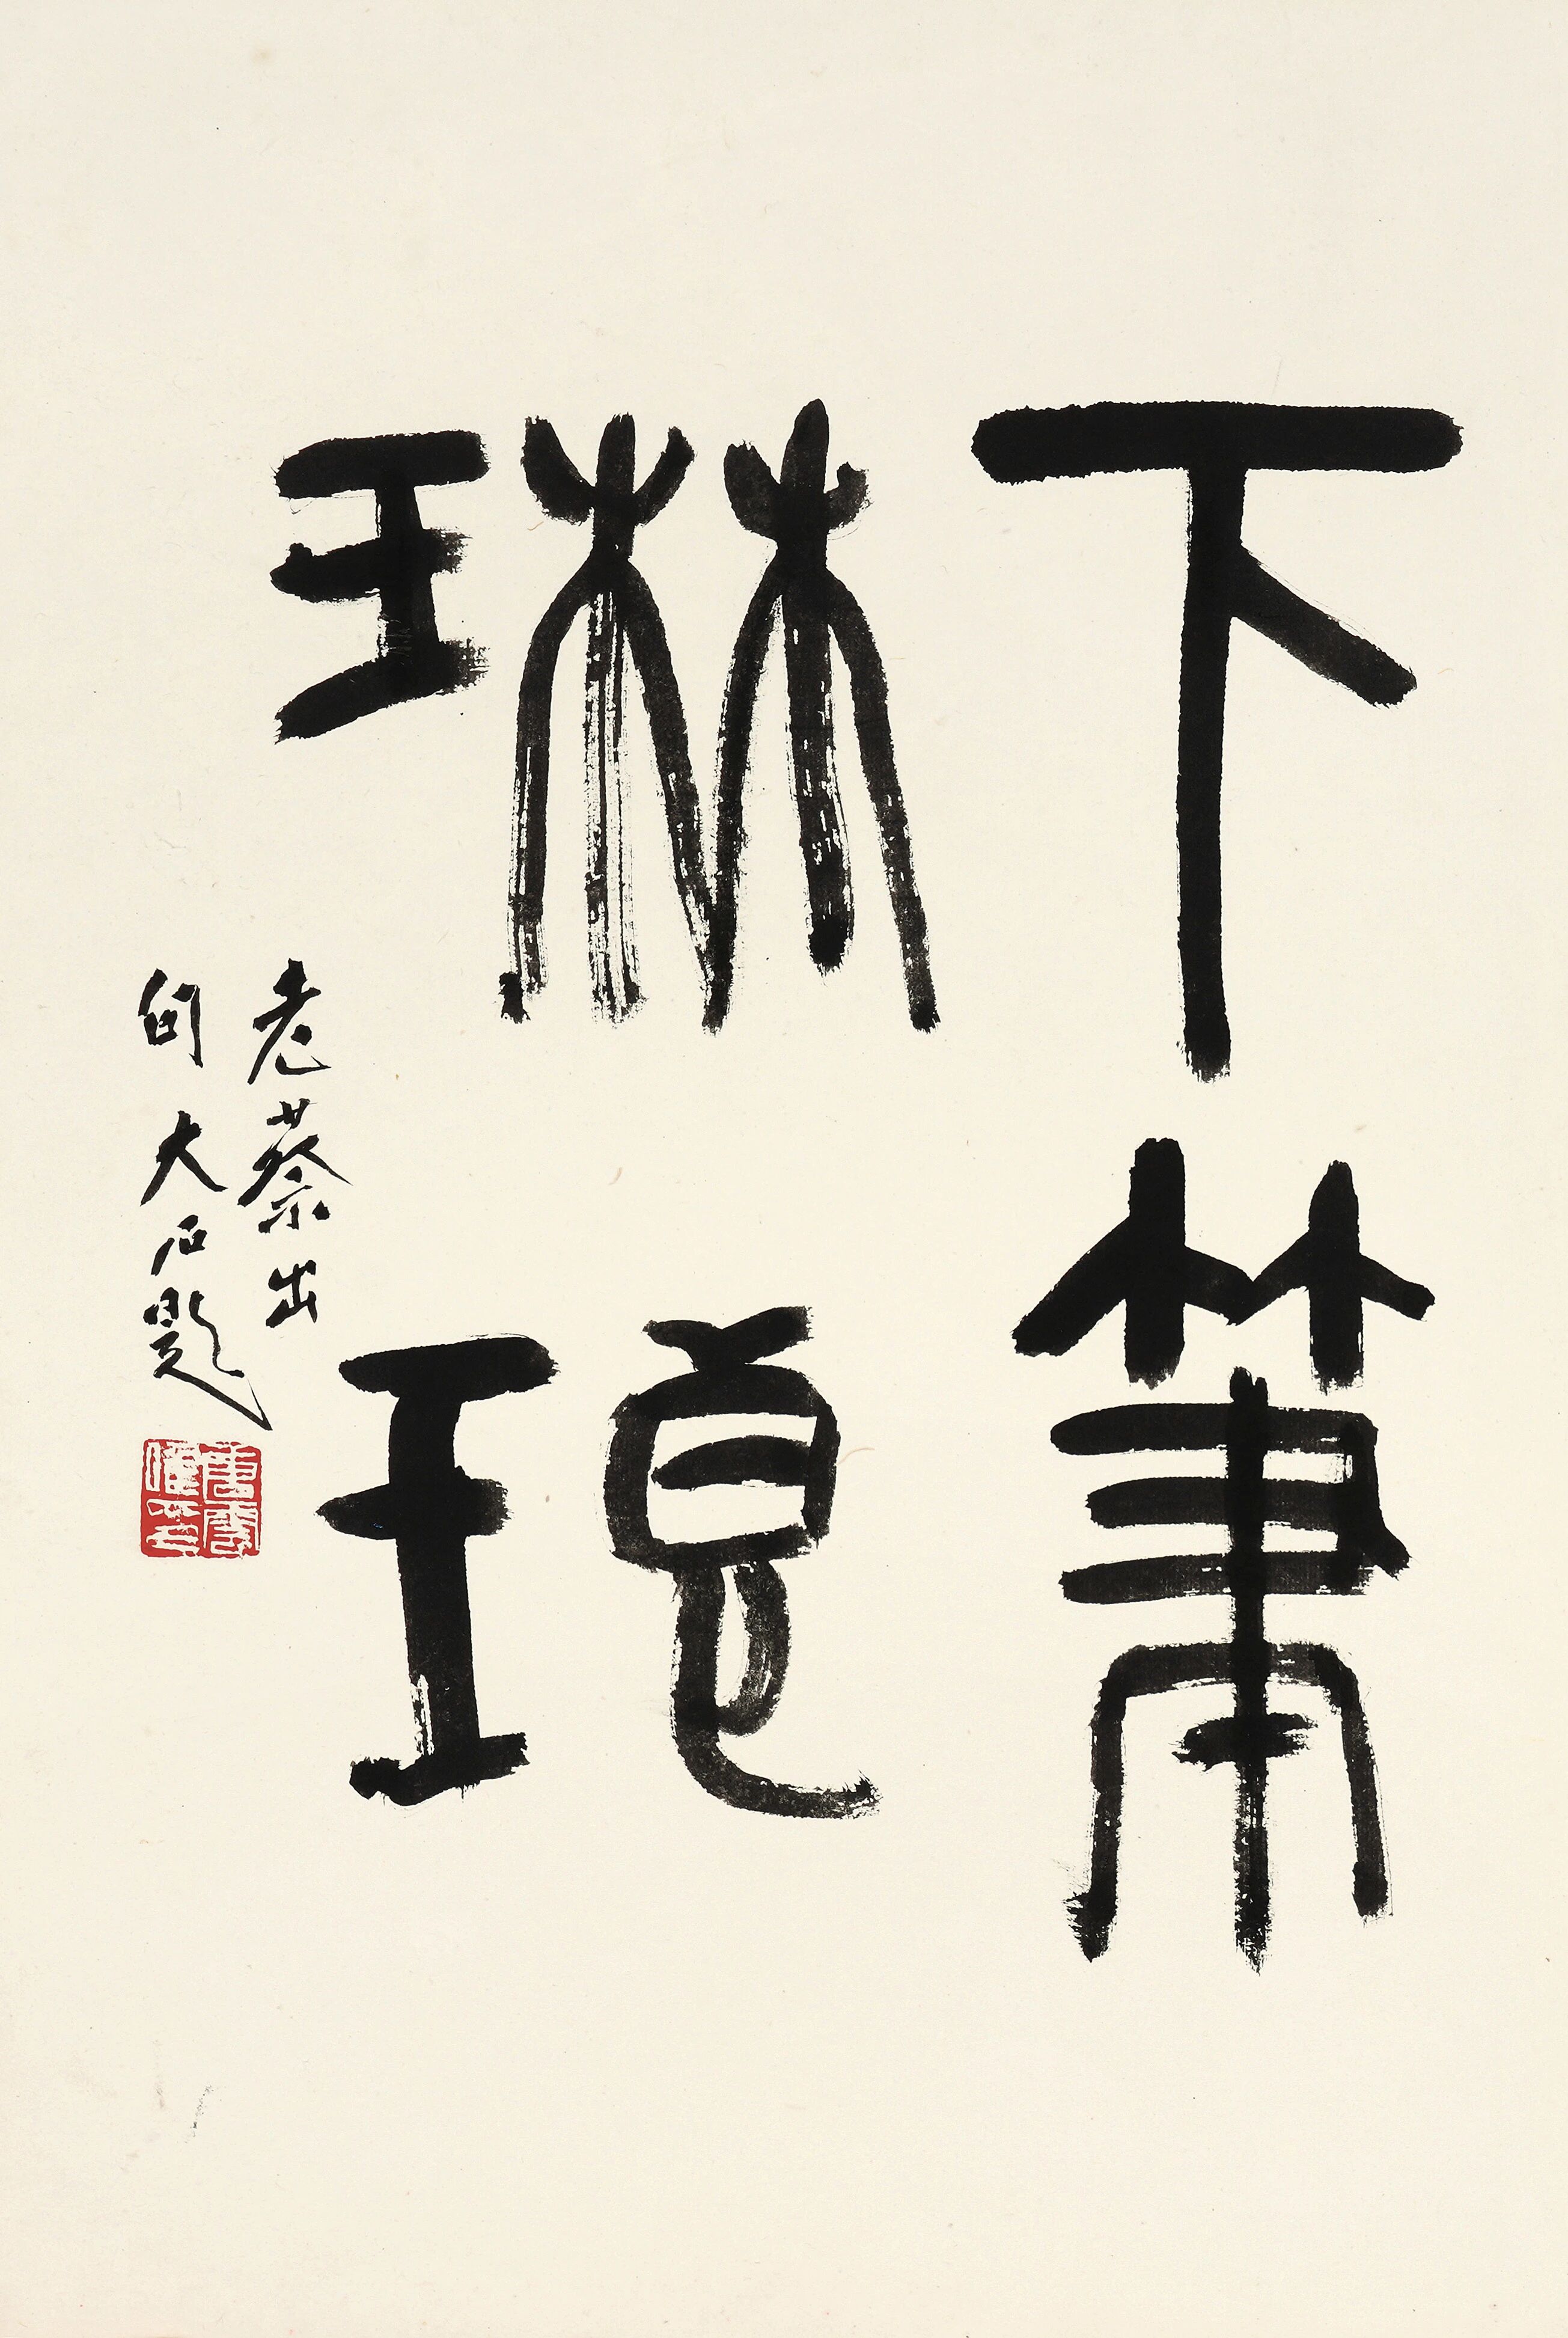 下筆
琳琅
老蔡出
句大石題